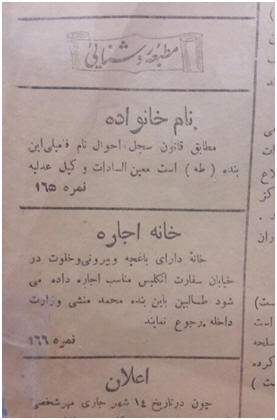 مطبعه روشنائی
نام خانواده
مطابق قانون سجل احوال نام فامیلی این
بنده ( طه ) است معین السادات وکیل عدلیه
نمره ۱۶۵
خانه اجاره
خانهٔ دارای باغچه وبیرونی وخلوت در
خیابان سفارت انگلیس مناسب اجاره داده می
شود طالبین باین بنده محمد منشی وزارت
داخله رجوع نمایند
نمره ۱۶۶
اعلان
چون درتاریخ ۱۴ شهر جاری مهرشخصی